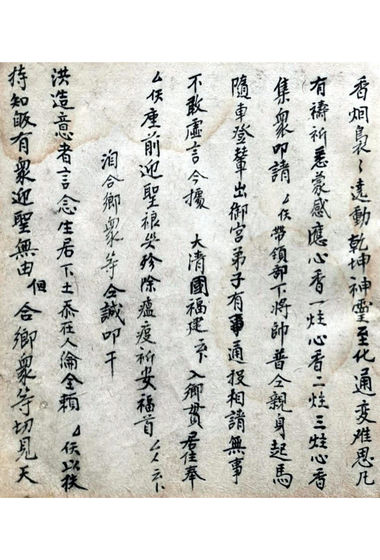 香烟裊〻遠動乾坤神靈至化通变难思凡
有禱祈悉蒙感應心香一炷心香二炷三炷心香
集衆叩請 厶佚带領部下將帥普仝親身起馬
隨車登輦出御宫弟子有事通投相請無事
不敢虚言今據 大清國福建 入鄉貫居住奉
厶佚座前迎聖禳災殄除瘟疫祈安福首 厶人
洎合鄉衆等仝誠叩干
洪造意者言念生居下土忝在人倫全頼 厶佚以扶
持知皈有衆迎聖無由 但合鄉衆等切見天